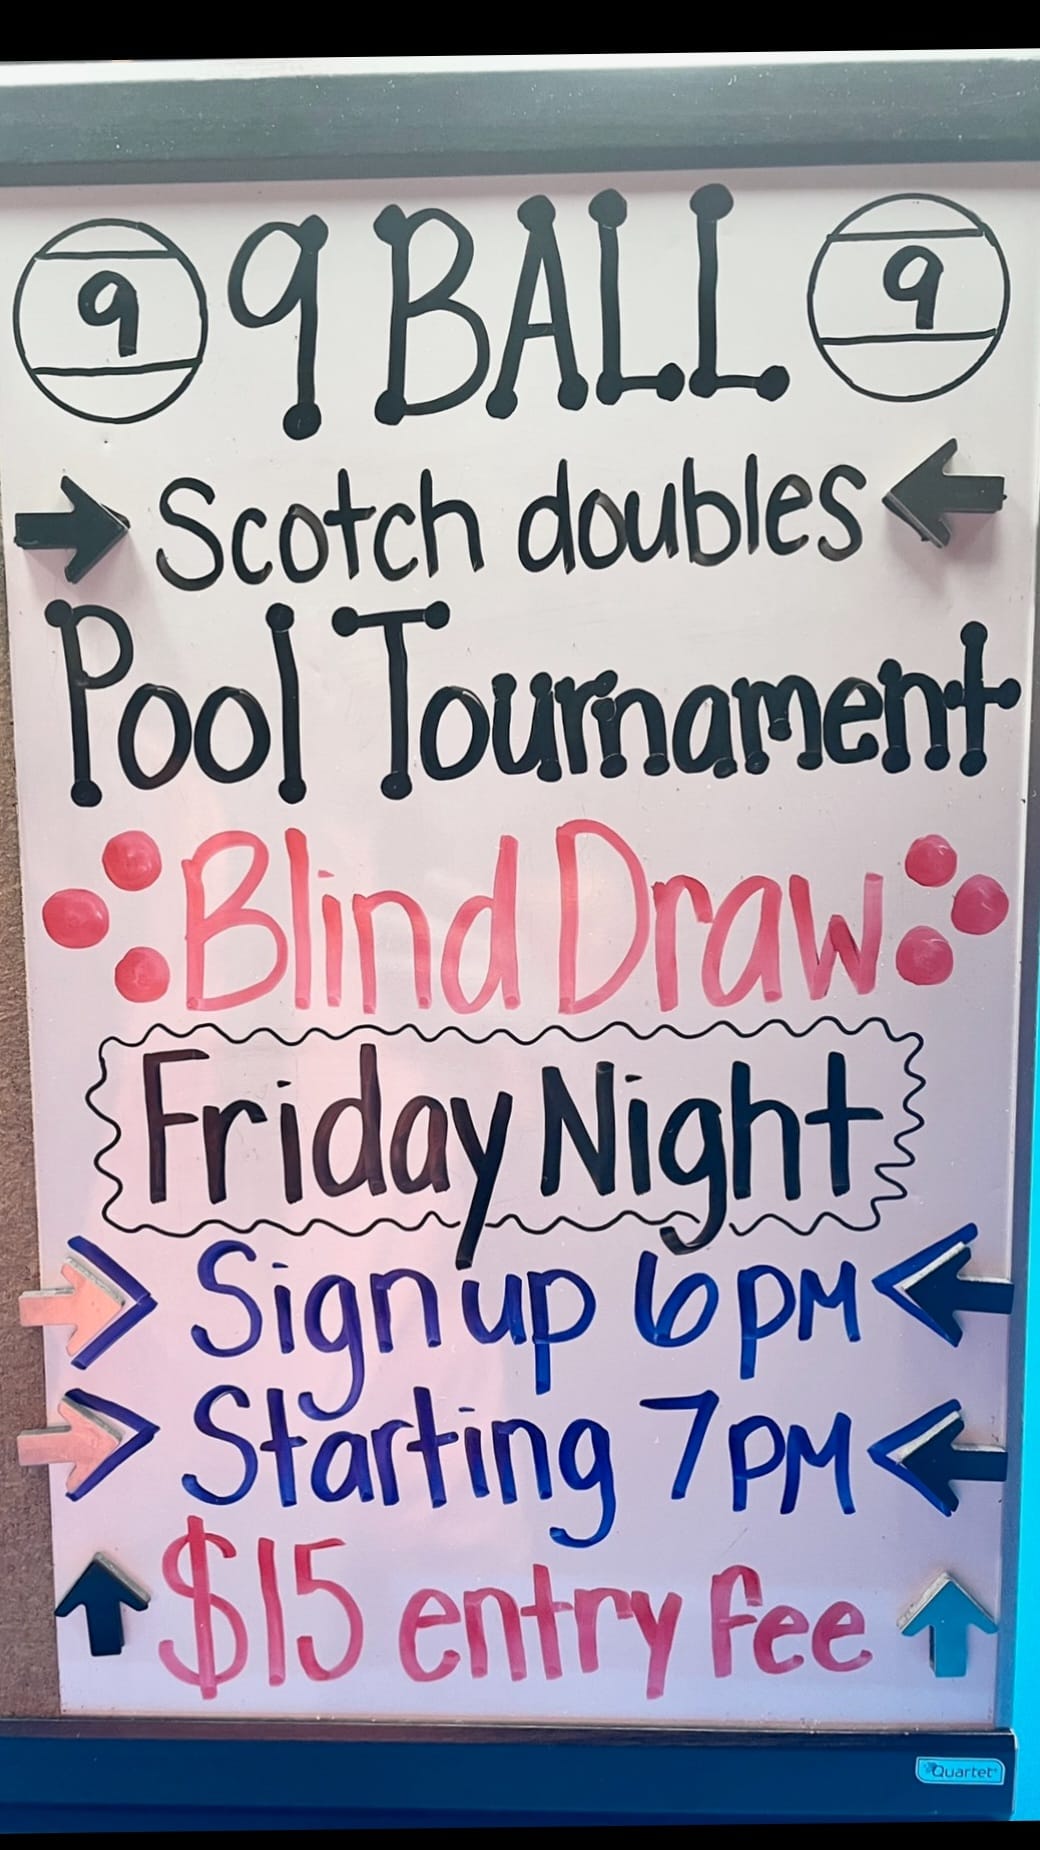 9 9 BALL 9
Scotch doubles
Pool Tournament
Blind Draw
Friday Night
Sign up 6 PM
Starting 7 PM
$15 entry fee
Quartet